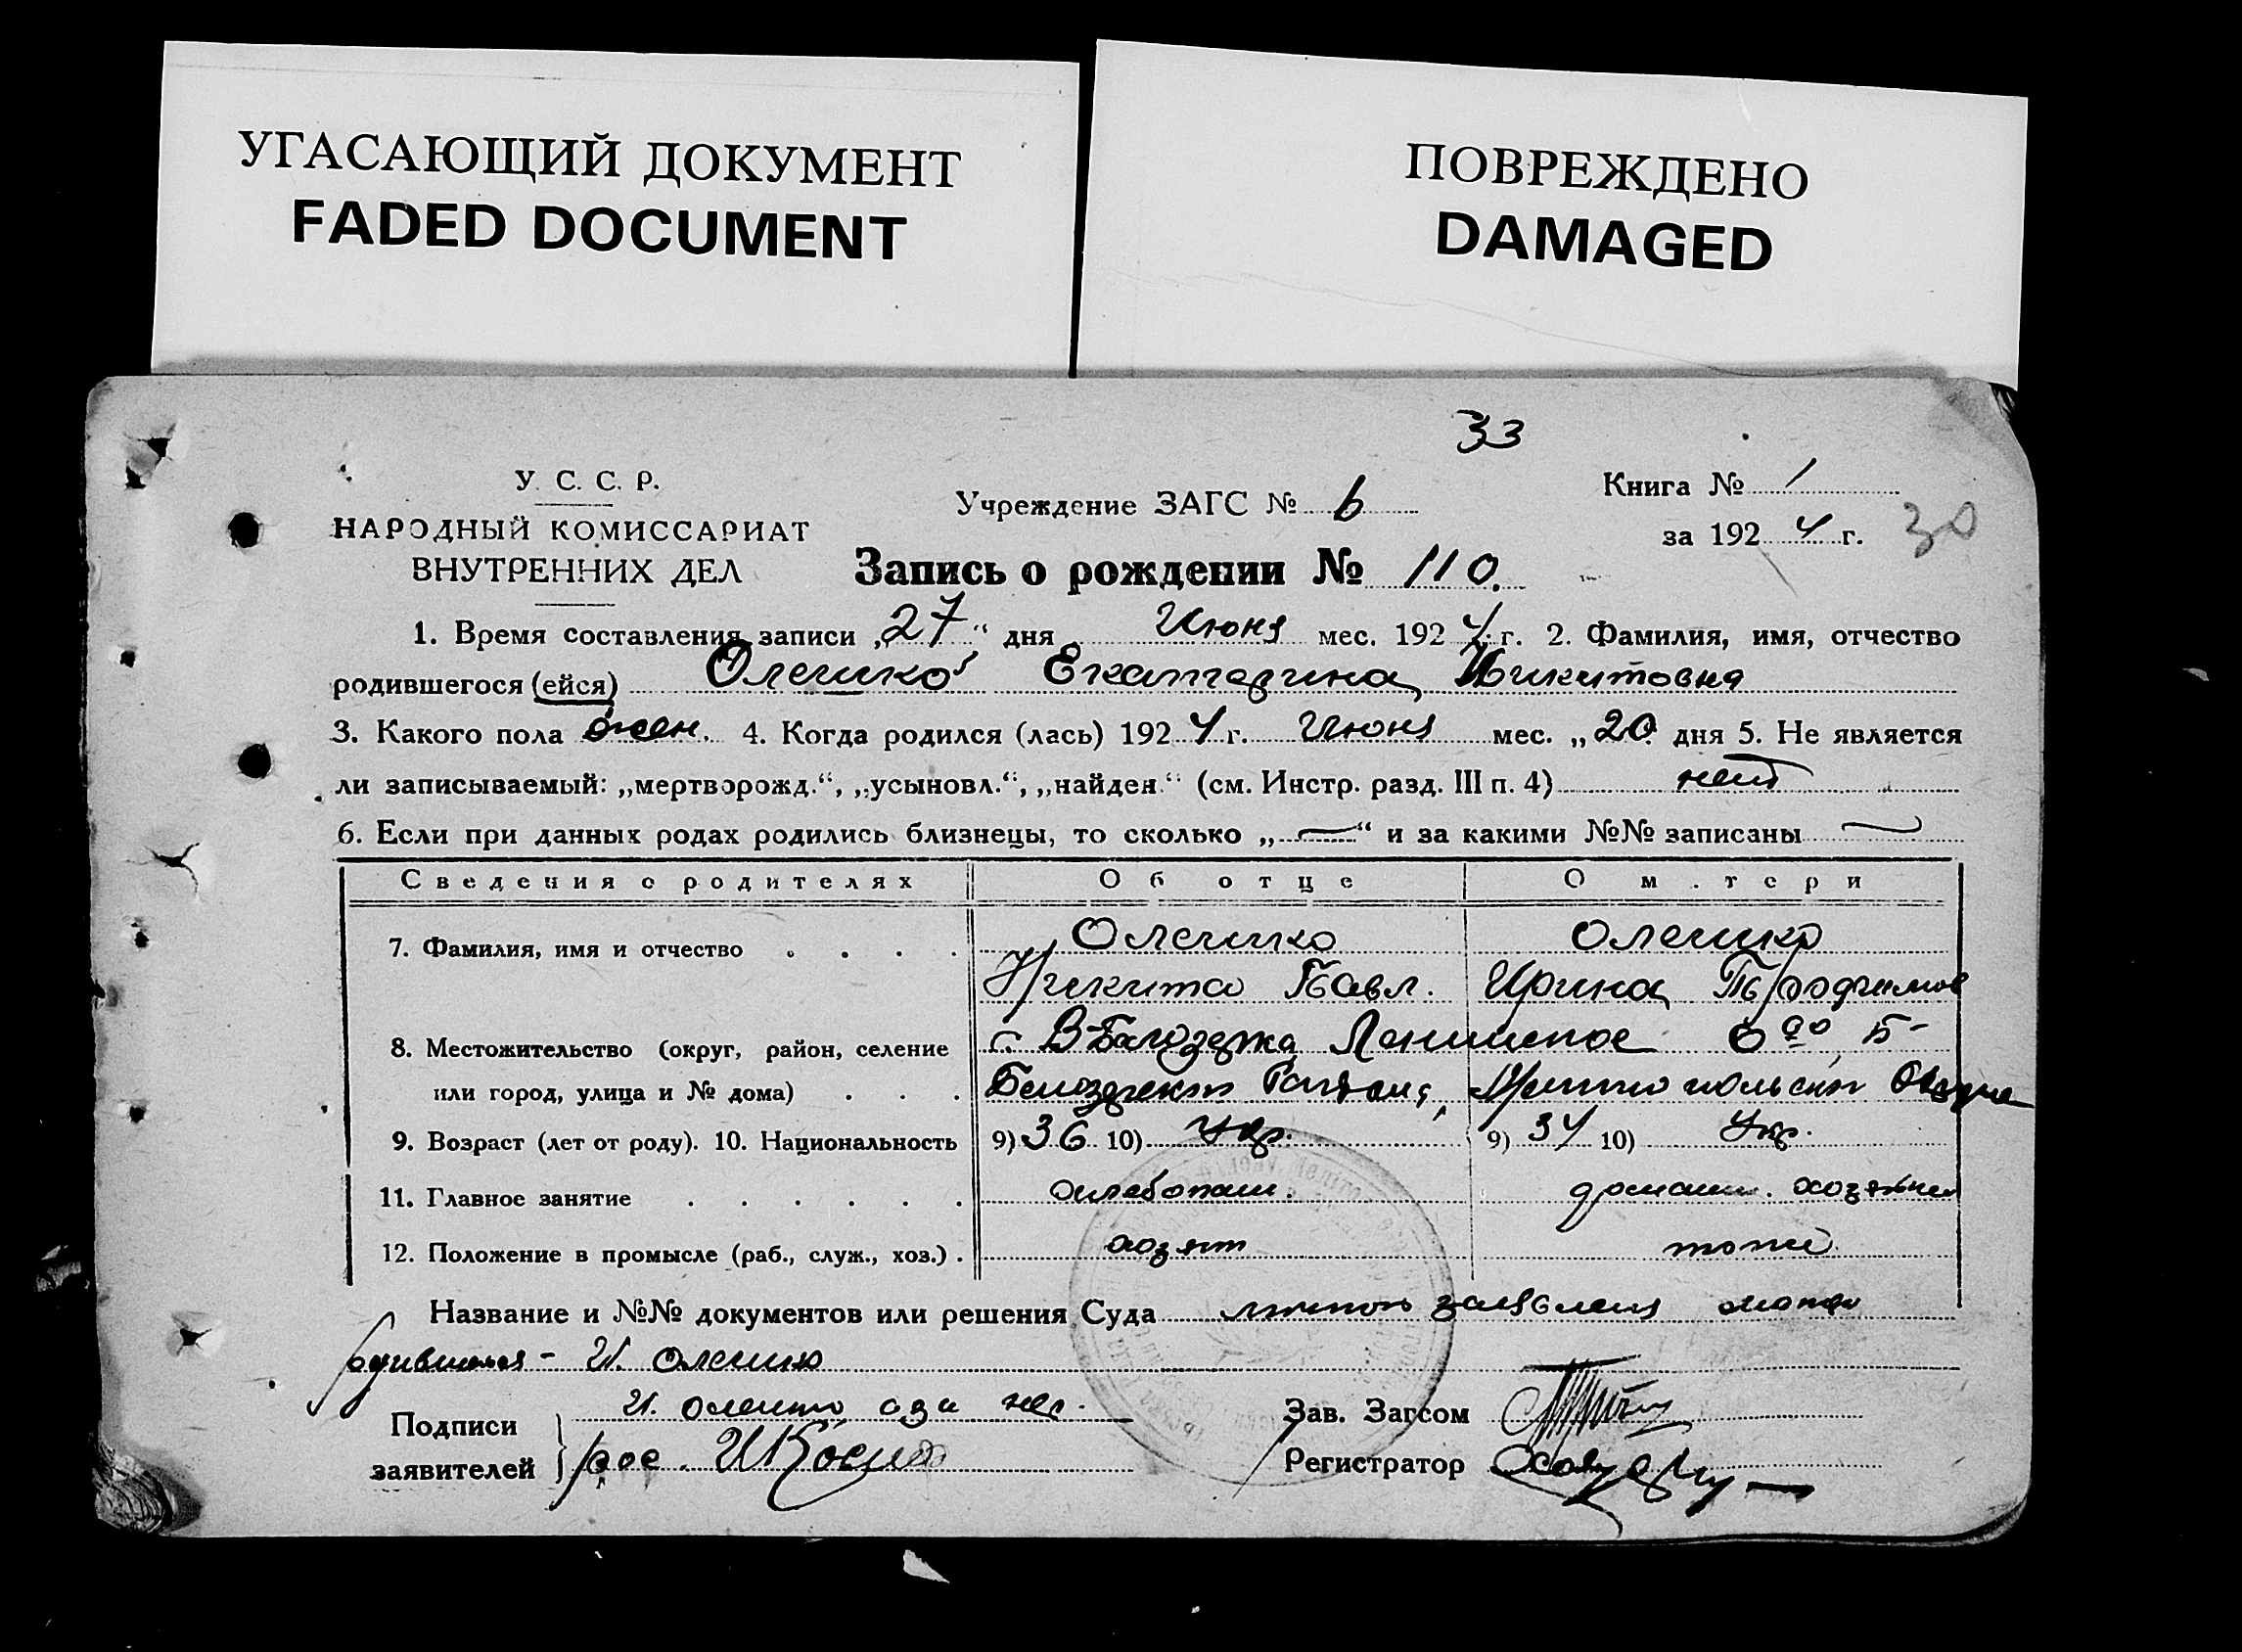 УГАСАЮЩИЙ ДОКУМЕНТ
FADED DOCUMENT
ПОВРЕЖДЕНО
DAMAGED
33
У. С. С. Р.
НАРОДНЫЙ КОМИССАРИАТ
ВНУТРЕННИХ ДЕЛ
Учреждение ЗАГС № 6
Книга № 1
за 1924 г.
30
Запись о рождении № 110.
1. Время составления записи „27“ дня Июня мес. 1924 г. 2. Фамилия, имя, отчество
родившегося (ейся) Олешко Екатерина Никитовна
3. Какого пола жен. 4. Когда родился (лась) 1924 г. Июня мес. „20 дня 5. Не является
ли записываемый: „мертворожд.“, „усыновл.“, „найден.“ (см. Инстр. разд. III п. 4) нет
6. Если при данных родах родились близнецы, то сколько „—“ и за какими №№ записаны —
Сведения о родителях Об отце О м.тери
7. Фамилия, имя и отчество . . . . Олешко Олешко
Никита Павл. Ирина Трофимов
8. Местожительство (округ, район, селение с.
или город, улица и № дома) . . .
9. Возраст (лет от роду). 10. Национальность 9) 36 10) Укр. 9) 34 10) Укр.
11. Главное занятие . . . . . . хлебопаш. домашн. хозяйка
12. Положение в промысле (раб., служ., хоз.) . хозяин тоже
Название и №№ документов или решения Суда заявления
родившейся - И. Олешко
Подписи
заявителей
И. Олешко
Зав. Загсом
Регистратор